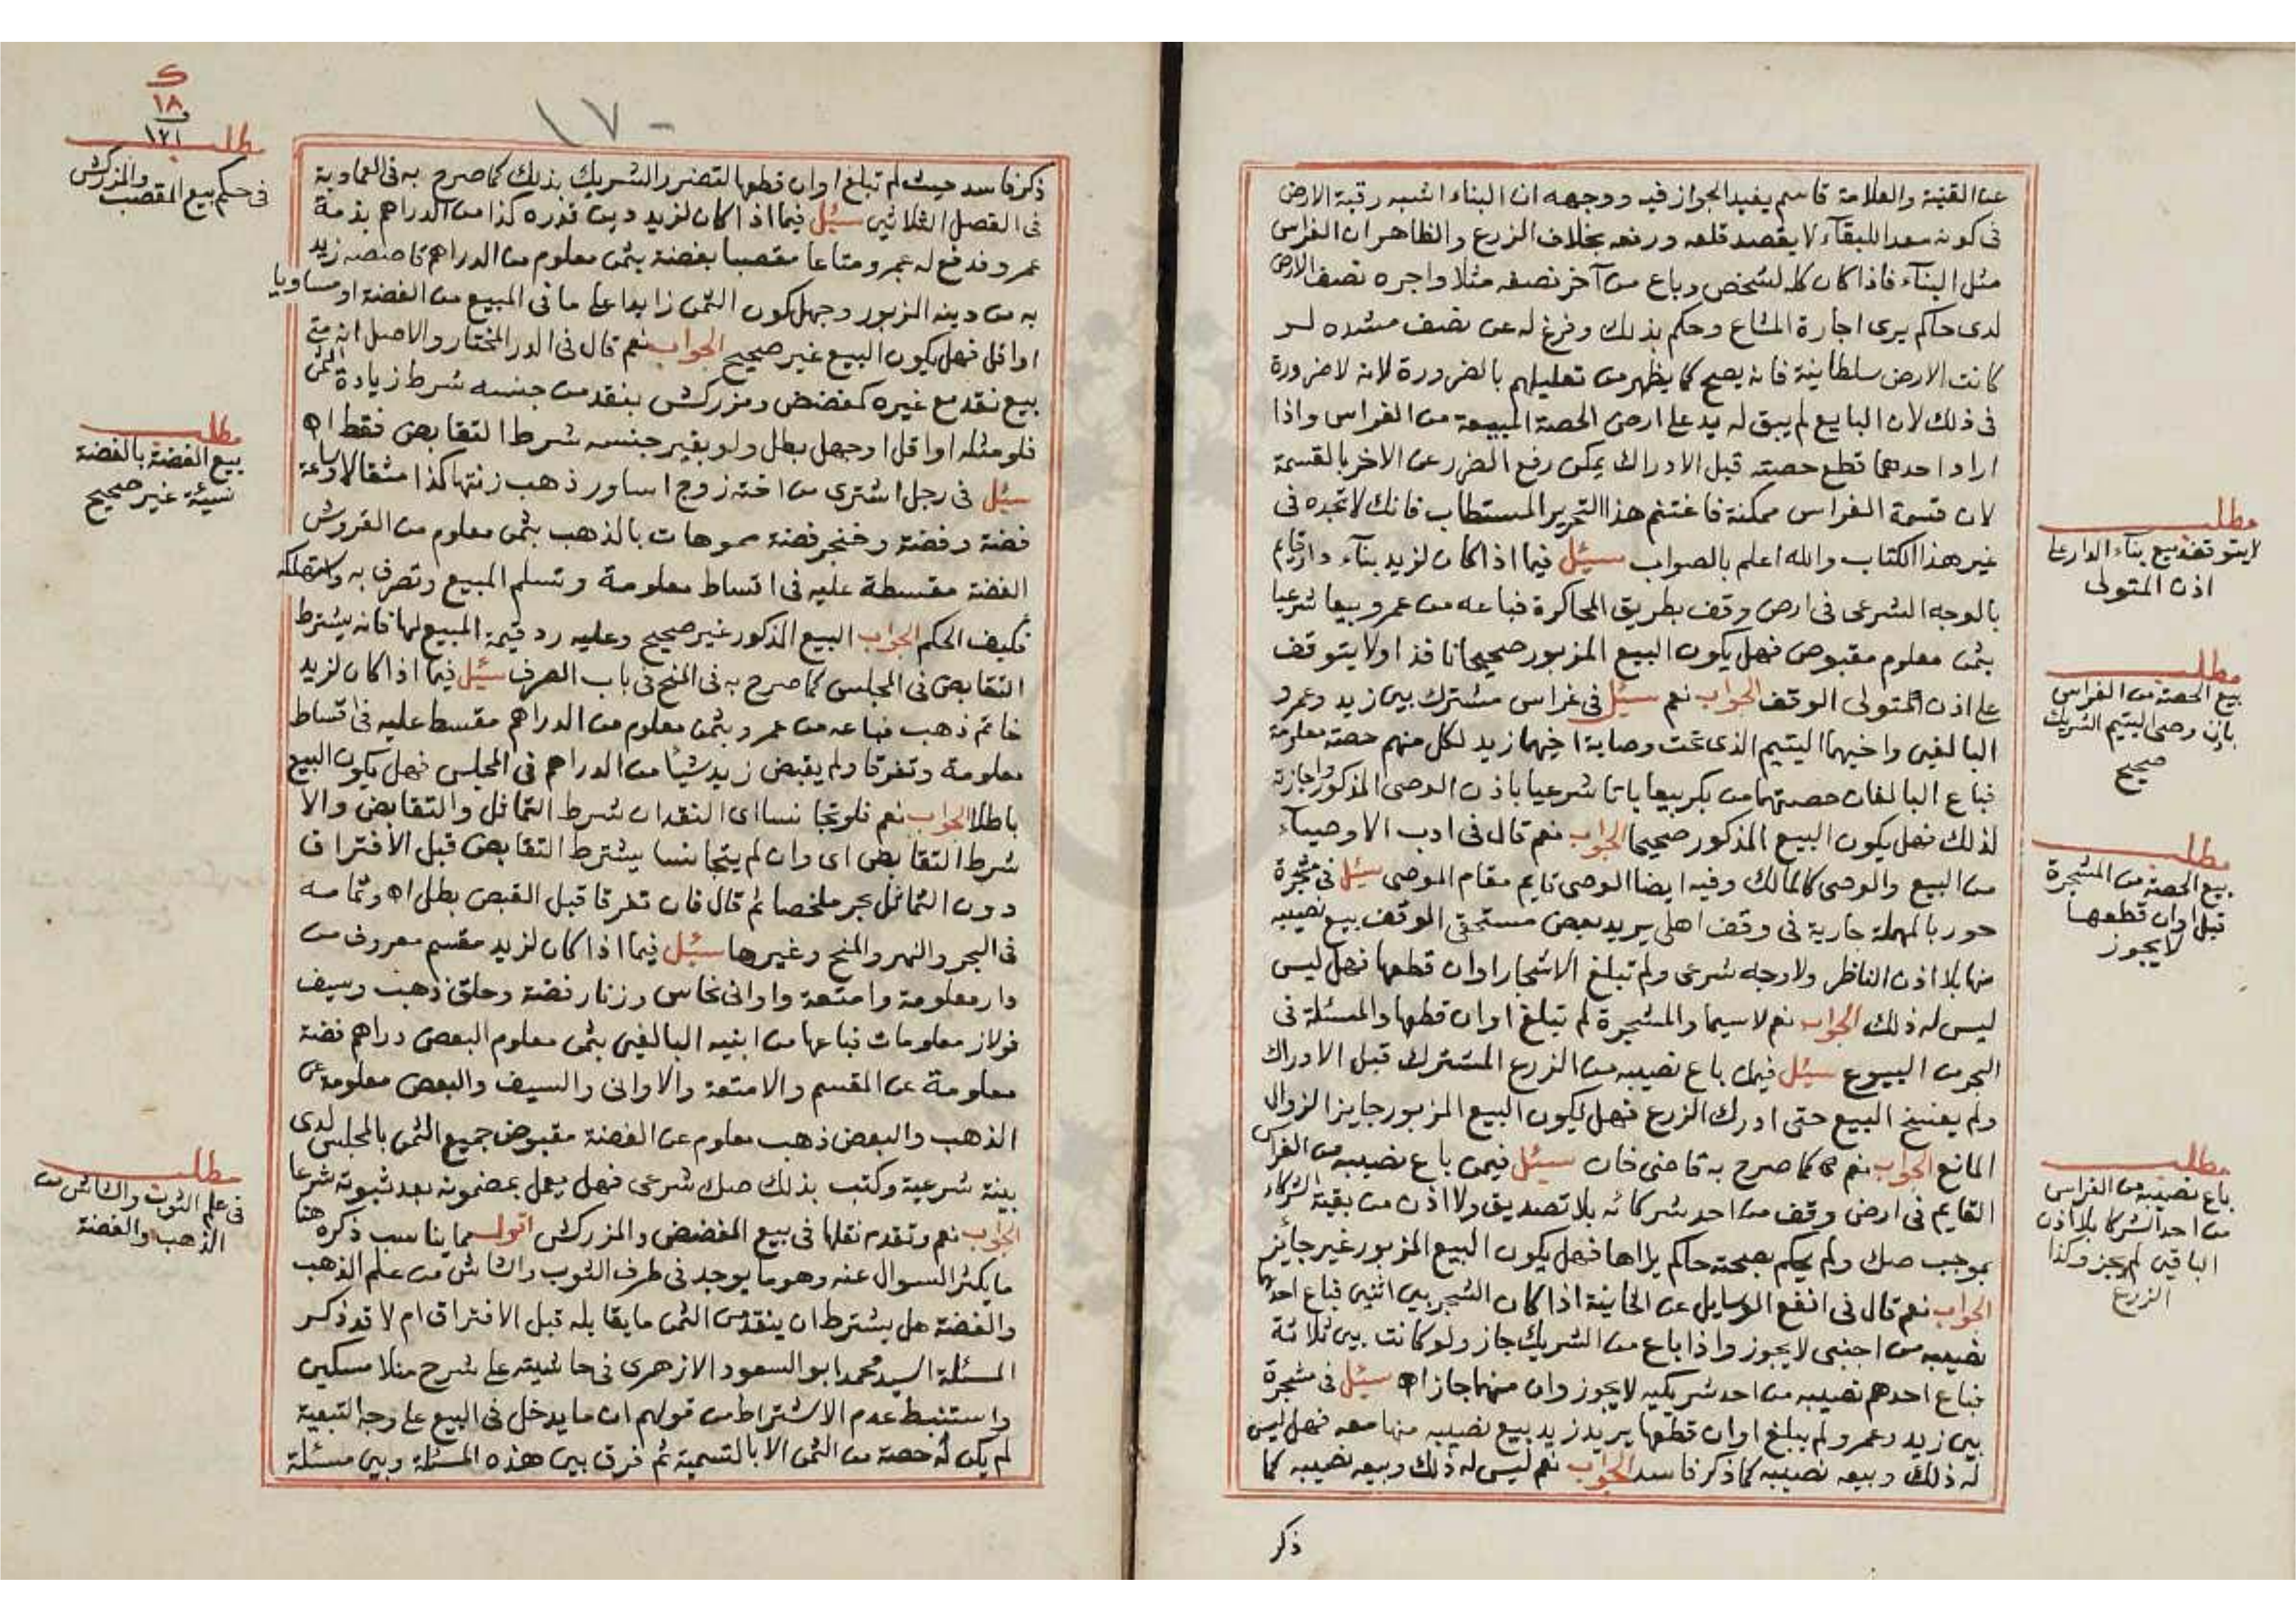 عن القنية والعلامة قاسم يفيد الجواز فيه ووجهه ان البناء اشبه رقبة الارض
فى كونه معدا للبقآء لا يقصد قلعه ورفعه بخلاف الزرع والظاهر ان الغراس
مثل البنآء فاذا كان كله لشخص وباع من آخر نصفه مثلا واجره نصف الارض
لدى حاكم يرى اجارة المشاع وحكم بذلك وفرغ له عن نصف مشده لو
كانت الارض سلطانية فانه يصح كما يظهر من تعليلهم بالضرورة لانه لا ضرورة
فى ذلك لان البايع لم يبق له يد على ارض الحصة المبيعة من الغراس واذا
اراد احدهما قطع حصته قبل الادراك يمكن رفع الضرر عن الاخر بالقسمة
لان قسمة الغراس ممكنة فاغتنم هذا التحرير المستطاب فانك لا تجده فى
غير هذا الكتاب والله اعلم بالصواب سئل فيما اذا كان لزيد بنآء دار قايم
بالوجه الشرعى فى ارض وقف بطريق المحاكرة فباعه من عمرو بيعا شرعيا
بثمن معلوم مقبوض فهل يكون البيع المزبور صحيحا نافذا ولا يتوقف
على اذن المتولى الوقف الجواب نعم سئل فى غراس مشترك بين زيد وعمرو
البالغين واخيهما اليتيم الذى تحت وصاية اخيهما زيد لكل منهم حصة معلومة
فباع البالغان حصتهما من بكر بيعا باتا شرعيا باذن الوصى المذكور واجازته
لذلك فهل يكون البيع المذكور صحيحا الجواب نعم قال فى ادب الاوصيآء
من البيع والوصى كالمالك وفيه ايضا الوصى قايم مقام الموصى سئل فى مشجرة
حور بالمهملة جارية فى وقف اهلى يريد بعض مستحقى الوقف بيع نصيبه
منها بلا اذن الناظر ولا وجه شرعى ولم تبلغ الاشجار اوان قطعها فهل ليس
ليس له ذلك الجواب نعم لا سيما والمشجرة لم تبلغ اوان قطعها والمسئلة فى
البحر من البيوع سئل فيمن باع نصيبه من الزرع المشترك قبل الادراك
ولم يفسخ البيع حتى ادرك الزرع فهل يكون البيع المزبور جايزا لزوال
المانع الجواب نعم كما صرح به قاضى خان سئل فيمن باع نصيبه من الغراس
القايم فى ارض وقف من احد شركائه بلا تصديق ولا اذن من بقية الشركاء
بموجب صك ولم يحكم بصحته حاكم يراها فهل يكون البيع المزبور غير جائز
الجواب نعم قال فى انفع الوسايل عن الخانية اذا كان الشجر بين اثنين فباع احدهما
نصيبه من اجنبى لا يجوز واذا باع من الشريك جاز ولو كانت بين ثلاثة
فباع احدهم نصيبه من احد شريكيه لا يجوز وان منهما جاز اه سئل فى مشجرة
بين زيد وعمرو لم يبلغ اوان قطعها يريد زيد بيع نصيبه منها معه فهل ليس
له ذلك وبيعه نصيبه كما ذكر فاسد الجواب نعم ليس له ذلك وبيعه نصيبه كما
ذكر
مطلب
لا يتوقف بيع بناء الدار على
اذن المتولى
مطلب
بيع الحصة من الغراس
باذن وصى اليتيم الشريك
صحيح
مطلب
بيع الحصة من المشجرة
قبل اوان قطعها
لا يجوز
مطلب
باع نصيبه من الغراس
من احد الشركا بلا اذن
الباقين لم يجز وكذا
الزرع
١٧٠
ك
١٨
١٢١
ذكر فاسد حيث لم تبلغ اوان قطعها لتضرر الشريك بذلك كما صرح به فى العمادية
فى الفصل الثلاثين سئل فيما اذا كان لزيد دين قدره كذا من الدراهم بذمة
عمرو فدفع له عمرو متاعا مقصبا بفضة بثمن معلوم من الدراهم قاصصه زيد
به من دينه المزبور وجهل كون الثمن زايدا على ما فى المبيع من الفضة او مساويا
او اقل فهل يكون البيع غير صحيح الجواب نعم قال فى الدر المختار والاصل انه متى
بيع نقد مع غيره كمفضض ومزركش بنقد من جنسه شرط زيادة الثمن
فلو مثله او اقل او جهل بطل ولو بغير جنسه شرط التقابض فقط اه
سئل فى رجل اشترى من اخته زوج اساور ذهب زنتها كذا مثقالا وساعة
فضة وفضة وخنجر فضة مموهات بالذهب بثمن معلوم من القروش
الفضة مقسطة عليه فى اقساط معلومة وتسلم المبيع وتصرف به واستهلكه
فكيف الحكم الجواب البيع المذكور غير صحيح وعليه رد قيمة المبيع لها فانه يشترط
التقابض فى المجلس كما صرح به فى المنح فى باب الصرف سئل فيما اذا كان لزيد
خاتم ذهب فباعه من عمرو بثمن معلوم من الدراهم مقسط عليه فى اقساط
معلومة وتفرقا ولم يقبض زيد شيأ من الدراهم فى المجلس فهل يكون البيع
باطلا الجواب نعم فلو تجانسا اى النقدان شرط التماثل والتقابض والا
شرط التقابض اى وان لم يتجانسا يشترط التقابض قبل الافتراق
دون التماثل بحر ملخصا ثم قال فان تفرقا قبل القبض بطل اه وتمامه
فى البحر والنهر والمنح وغيرها سئل فيما اذا كان لزيد مقسم معروف من
دار معلومة وامتعة واوانى نحاس وزنار فضة وحلق ذهب وسيف
فولاز معلومات فباعها من ابنيه البالغين بثمن معلوم البعض دراهم فضة
معلومة عن المقسم والامتعة والاوانى والسيف والبعض معلومة عن
الذهب والبعض ذهب معلوم عن الفضة مقبوض جميع الثمن بالمجلس لدى
بينة شرعية وكتب بذلك صك شرعى فهل يعمل بمضمونه بعد ثبوته شرعا
الجواب نعم وتقدم نقلها فى بيع المفضض والمزركش اقول مما يناسب ذكره هنا
ما يكثر السوال عنه وهو ما يوجد فى طرف الثوب والشاش من علم الذهب
والفضة هل يشترط ان ينقد من الثمن ما يقابله قبل الافتراق ام لا قد ذكر
المسئلة السيد محمد ابو السعود الازهرى فى حاشيته على شرح منلا مسكين
واستنبط عدم الاشتراط من قولهم ان ما يدخل فى البيع على وجه التبعية
لم يكن له حصة من الثمن الا بالتسمية ثم فرق بين هذه المسئلة وبين مسئلة
مطلب
فى حكم بيع المقصب والمزركش
مطلب
بيع الفضة بالفضة
نسيئة غير صحيح
مطلب
فى علم الثوب والشاش من
الذهب والفضة